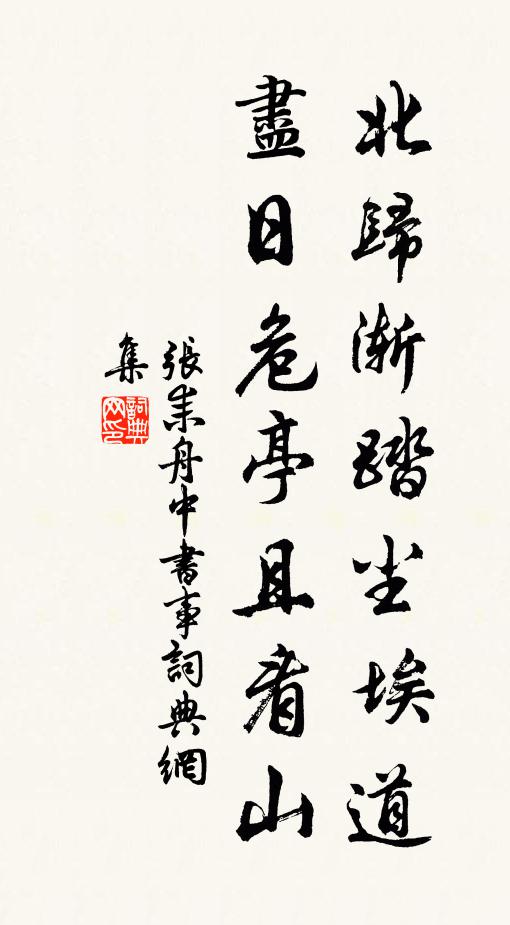 北歸渐踏尘埃道
盡日危亭且看山
張耒舟中書事詞典網
集
詞典
网印